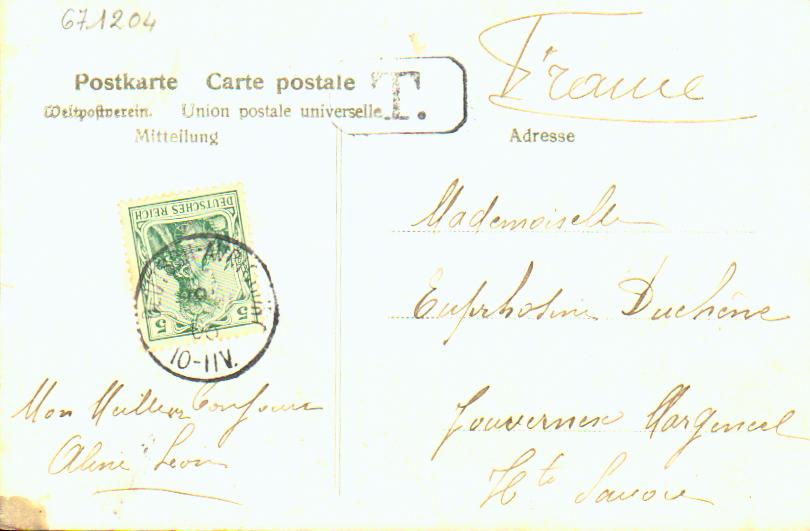 671204
France
Postkarte Carte postale
T.
Weltpostverein. Union postale universelle
Mitteilung
Adresse
DEUTSCHES REICH
5 5
10-11V.
Mademoiselle
Euphrosine Duchêne
Mon Meilleur Bonjour
Aline Léon
Hte Savoie